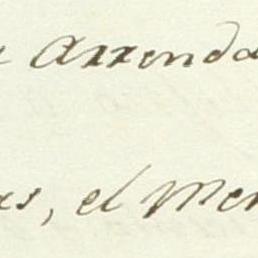 Arrenda
, el Mer